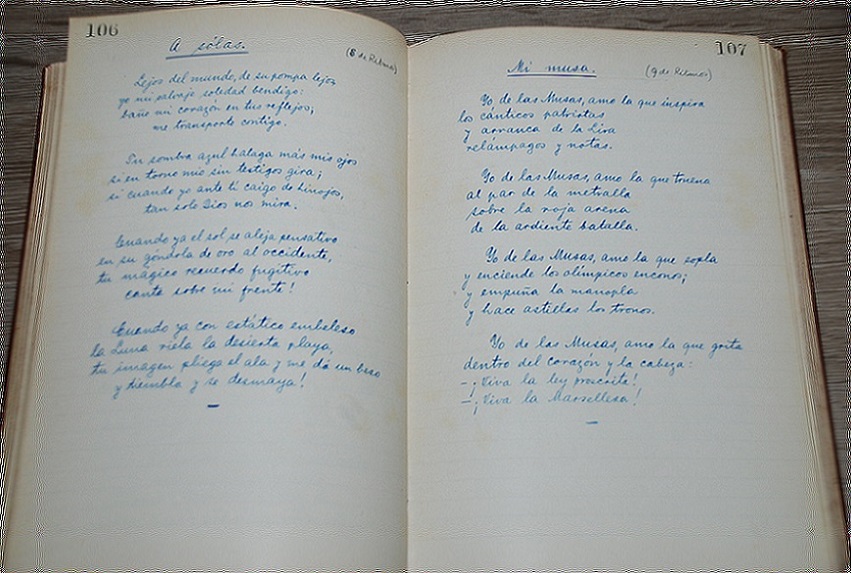 106
A sólas.
(8 de Ritmos)
Lejos del mundo, de su pompa lejos
yo mi salvaje soledad bendigo:
baño mi corazón en tus reflejos;
me transporte contigo.
Tu sombra azul halaga más mis ojos
si en torno mio sin testigos gira;
si cuando yo ante ti caigo de hinojos,
tan solo Dios nos mira.
Cuando ya el sol se aleja pensativo
en su góndola de oro al occidente,
tu mágico recuerdo fugitivo
canta sobre mi frente!
Cuando ya con estático embeleso
la Luna riela la desierta playa,
tu imagen pliega el ala y me dá un beso
y tiembla y se desmaya!
107
Mi musa.
(9 de Ritmos)
Yo de las Musas, amo la que inspira
los cánticos patriotas
y arranca de la Lira
relámpagos y notas.
Yo de las Musas, amo la que truena
al par de la metralla
sobre la roja arena
de la ardiente batalla.
Yo de las Musas, amo la que sopla
y enciende los olímpicos enconos;
y empuña la manopla
y hace astillas los tronos.
Yo de las Musas, amo la que grita
dentro del corazón y la cabeza:
–¡Viva la ley proscrita!
–¡Viva la Marsellesa!